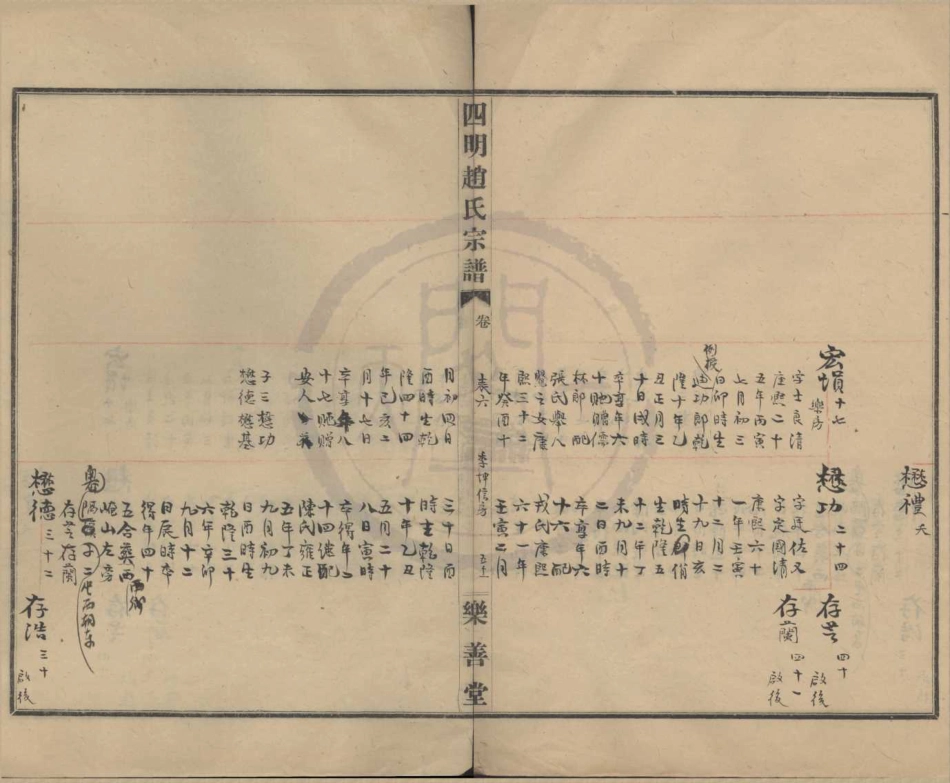 懋禮 夭
宏愩十七
樂房
字士良清
庠熙二十
五年丙寅
七月初三
日卯時生
例授
迪功郎乾
隆十年乙
丑正月三
十日戌時
卒享年六
十貤贈儒
林郎 配
張氏舉八
熙三十二
年癸酉十
懋功 二十四
字廷佐又
字定國清
康熙六十
一年壬寅
十二月二
十九日亥
生乾隆五
十二年丁
未九月十
二日酉時
卒享年六
十六 配
戎氏康熙
六十一年
壬寅二月
存芸 四十
啟後
存蘭 四十一
啟後
四明趙氏宗譜
卷
表六
李坤信房
樂善堂
月初四日
酉時生乾
隆四十四
年己亥二
月十七日
卒享年八
十七貤贈
安人
子三懋功
懋德懋基
三十日酉
時生乾隆
十年乙丑
五月二十
八日寅時
卒得年二
十四繼配
陳氏雍正
五年丁未
九月初九
日酉時生
乾隆三十
六年辛卯
九月十二
日辰時卒
得年四十
五合葬西
峴山左旁
存芸存蘭
懋德 三十二
存浩 三十
啟後